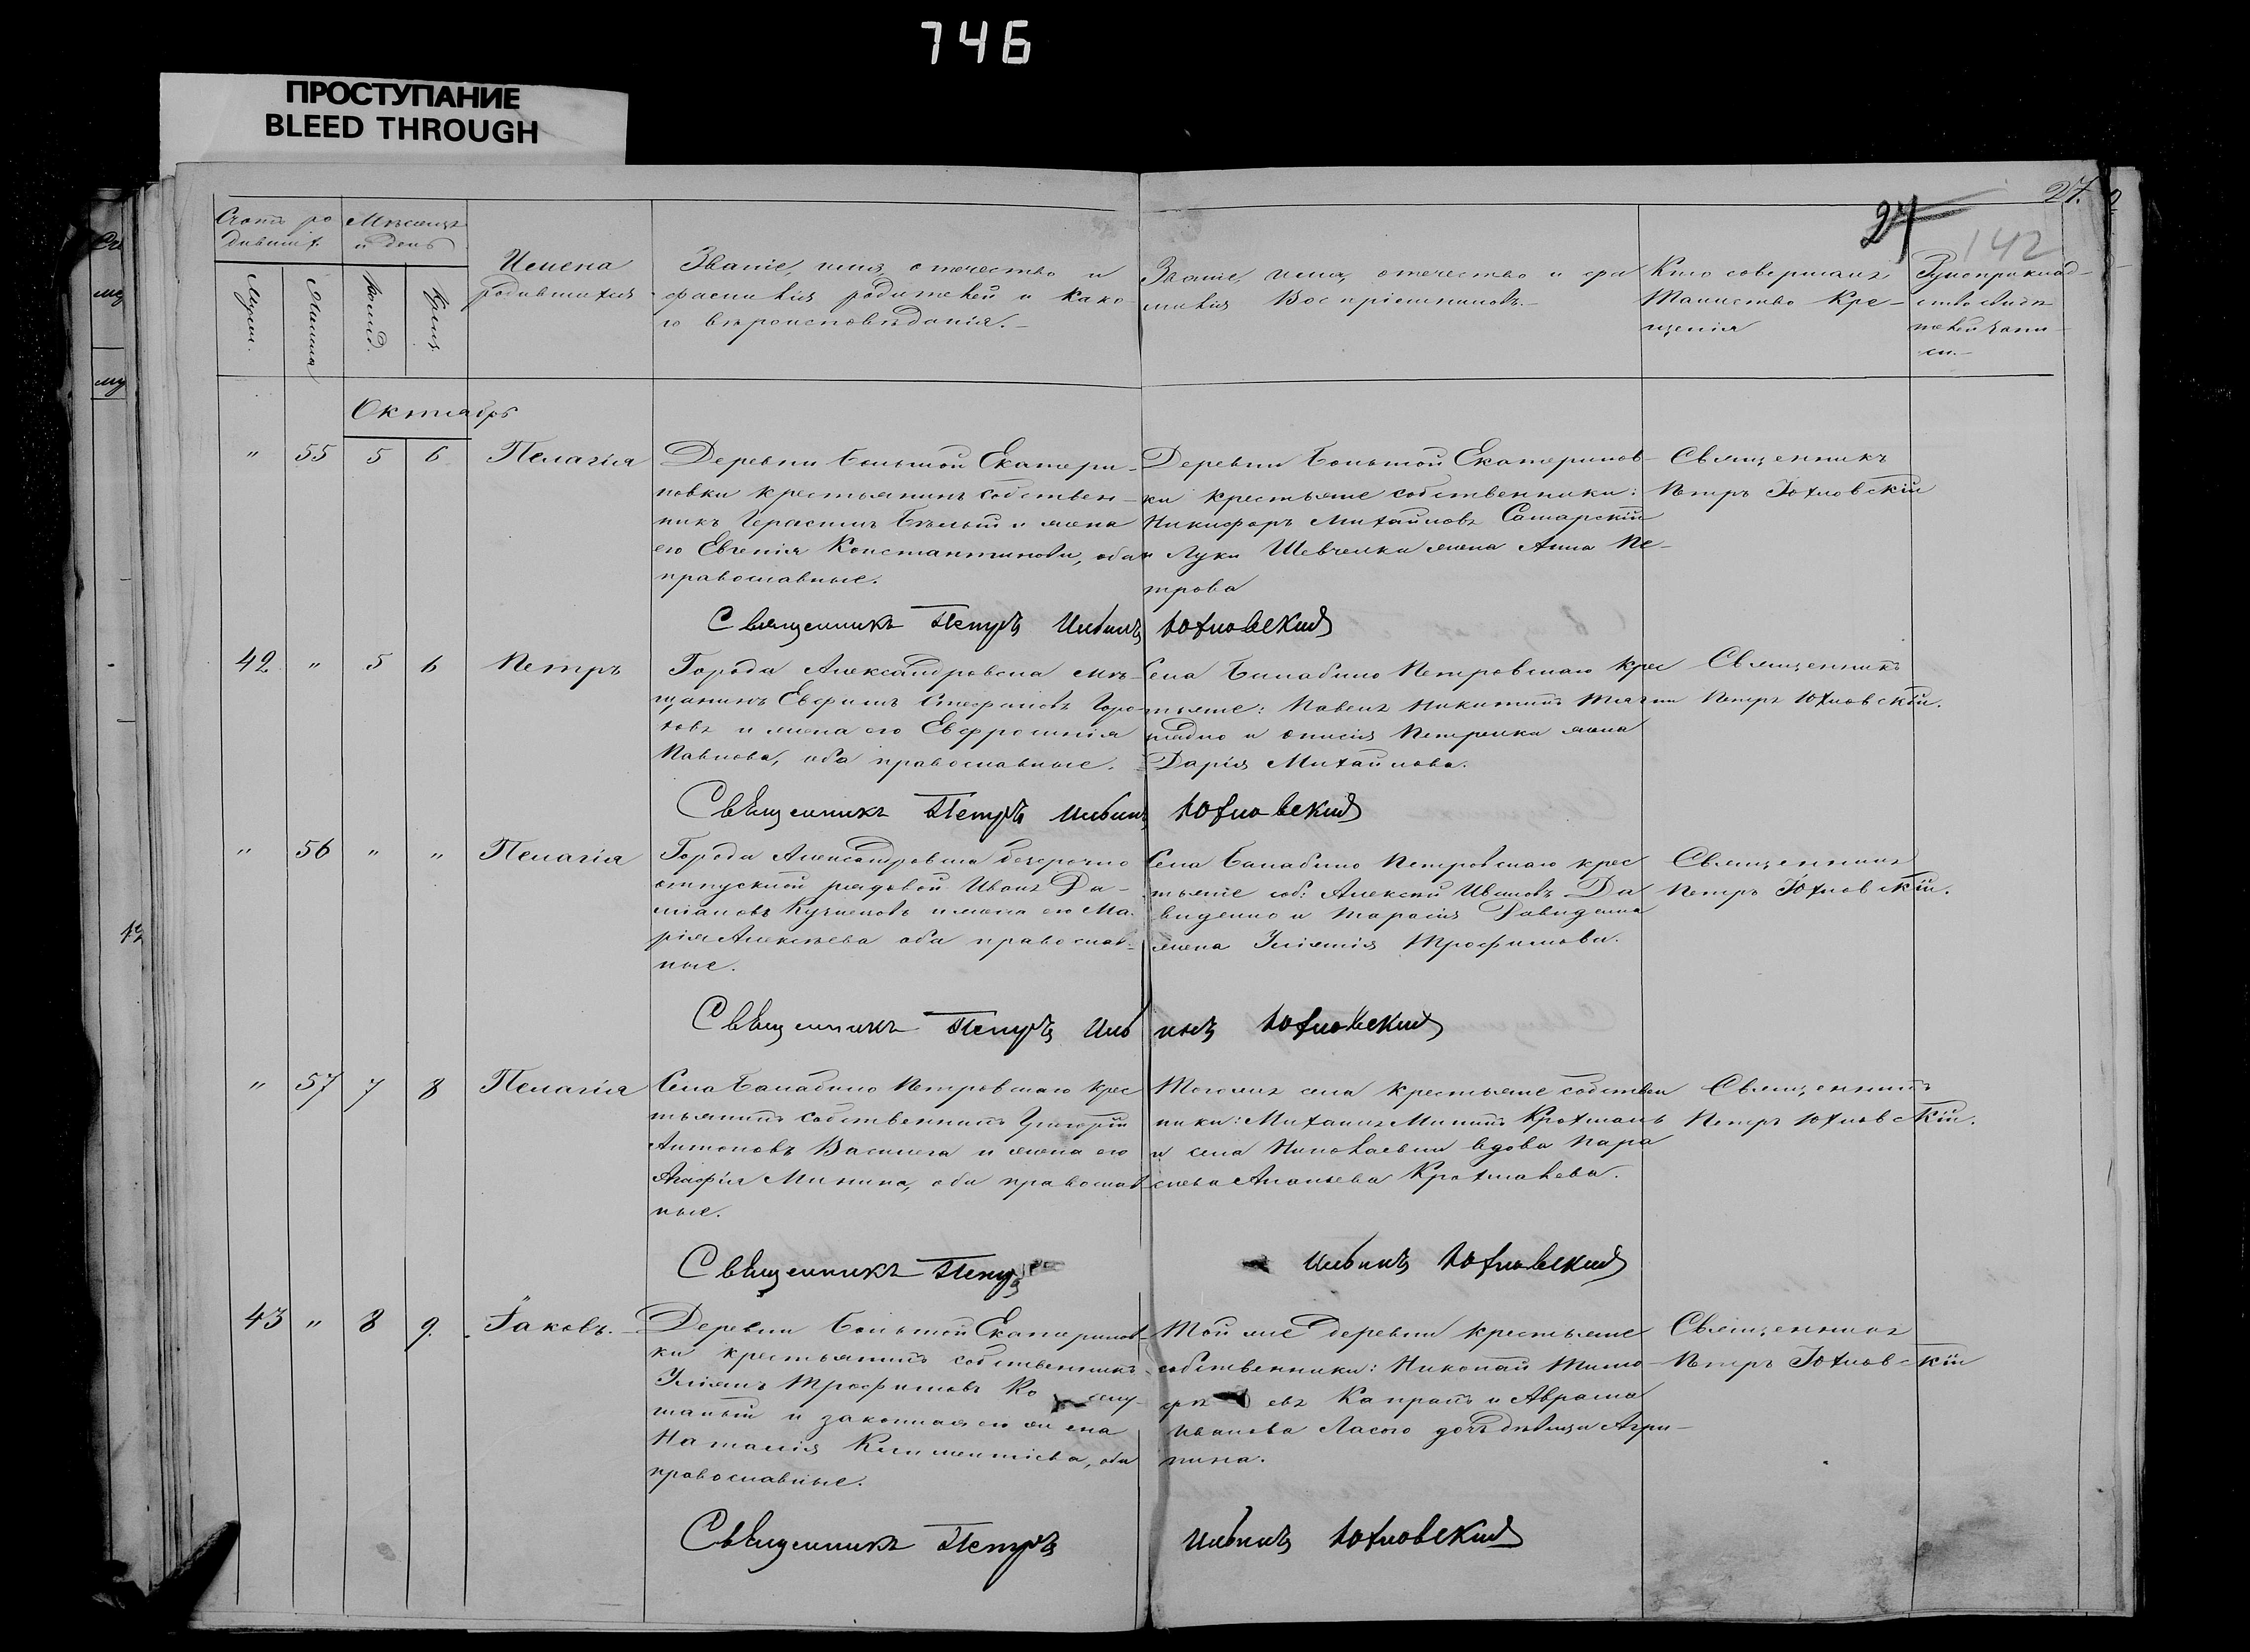 746
ПРОСТУПАНИЕ
BLEED THROUGH
27.
27
142
Счетъ ро
дившихъ
Мѣсяцъ
и день
Имена
родившихся
Званіе, имя, отечество и
фамилія родителей и како
го вѣроисповѣданія.
Званіе, имя, отечество и фа
милія Воспріемниковъ.
Кто совершалъ
Таинство Кре-
щенія
Рукоприклад-
ство свидѣ
телей запи-
си.
Октябрь
" 55 5 6 Пелагія
Деревни Большой Екатери-
новки крестьянинъ собствен-
никъ Герасимъ Бѣлый и жена
его Евгенія Константинова, оба
православные.
Деревни Большой Екатеринов-
ки крестьяне собственники:
Никифоръ Михайловъ Самарскій
и Луки Шевченка жена Анна Пе-
трова
Священникъ
Петръ Юхновскій
Священникъ Петръ Юхновскій
42 " 5 6 Петръ
Города Александровска мѣ-
щанинъ Евфимъ Стефановъ Горо-
ховъ и жена его Евфросинія
Павлова, оба православные.
Села Балабино Петровскаго крес
тьяне: Павелъ Никитинъ
и Петренка жена
Дарія Михайлова.
Священникъ
Петръ Юхновскій.
Священникъ Петръ Юхновскій
" 56 " " Пелагія
Города Александровска безсрочно
отпускной рядовой Иванъ Да-
міановъ Кузнецовъ и жена его Ма-
рія Алексѣева оба православ-
ные.
Села Балабино Петровскаго крес
тьяне соб: Алексій Ивановъ Да
виденко и Тарасія Давиденка
жена Іуліанія Трофимова.
Священникъ
Петръ Юхновскій.
Священникъ Петръ Юхновскій
" 57 7 8 Пелагія
Села Балабино Петровскаго крес
тьянинъ собственникъ Григорій
Антоновъ Василега и жена его
Агафія Минина, оба православ-
ные.
Тогожъ села крестьяне собствен
ники: Михаилъ Мининъ Крохмаль
и села Николаевки вдова Пара
скева Ананьева Крохмалева.
Священникъ
Петръ Юхновскій.
Священникъ Петръ Юхновскій
43 " 8 9. Іаковъ.
Деревни Большой Екатеринов-
ки крестьянинъ собственникъ
Іуліанъ Трофимовъ
и законная его жена
Наталія Климентіева, оба
православные.
Той же деревни крестьяне
собственники: Николай Тимо-
фѣ евъ Капранъ и Авраама
Иванова Ласого дочь дѣвица Агри-
пина.
Священникъ
Петръ Юхновскій
Священникъ Петръ Юхновскій